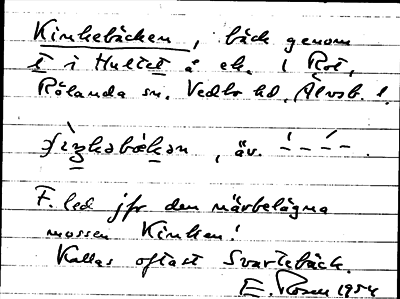 Kinkebäcken, bäck genom
i Hultet å ek. 1 Rot,
Rölanda sn. Vedbo hd, Älvsb. l.
äv.
F. led jfr den närbelägna
mossen Kinken!
Kallas oftast Svartebäck.
E. 1954